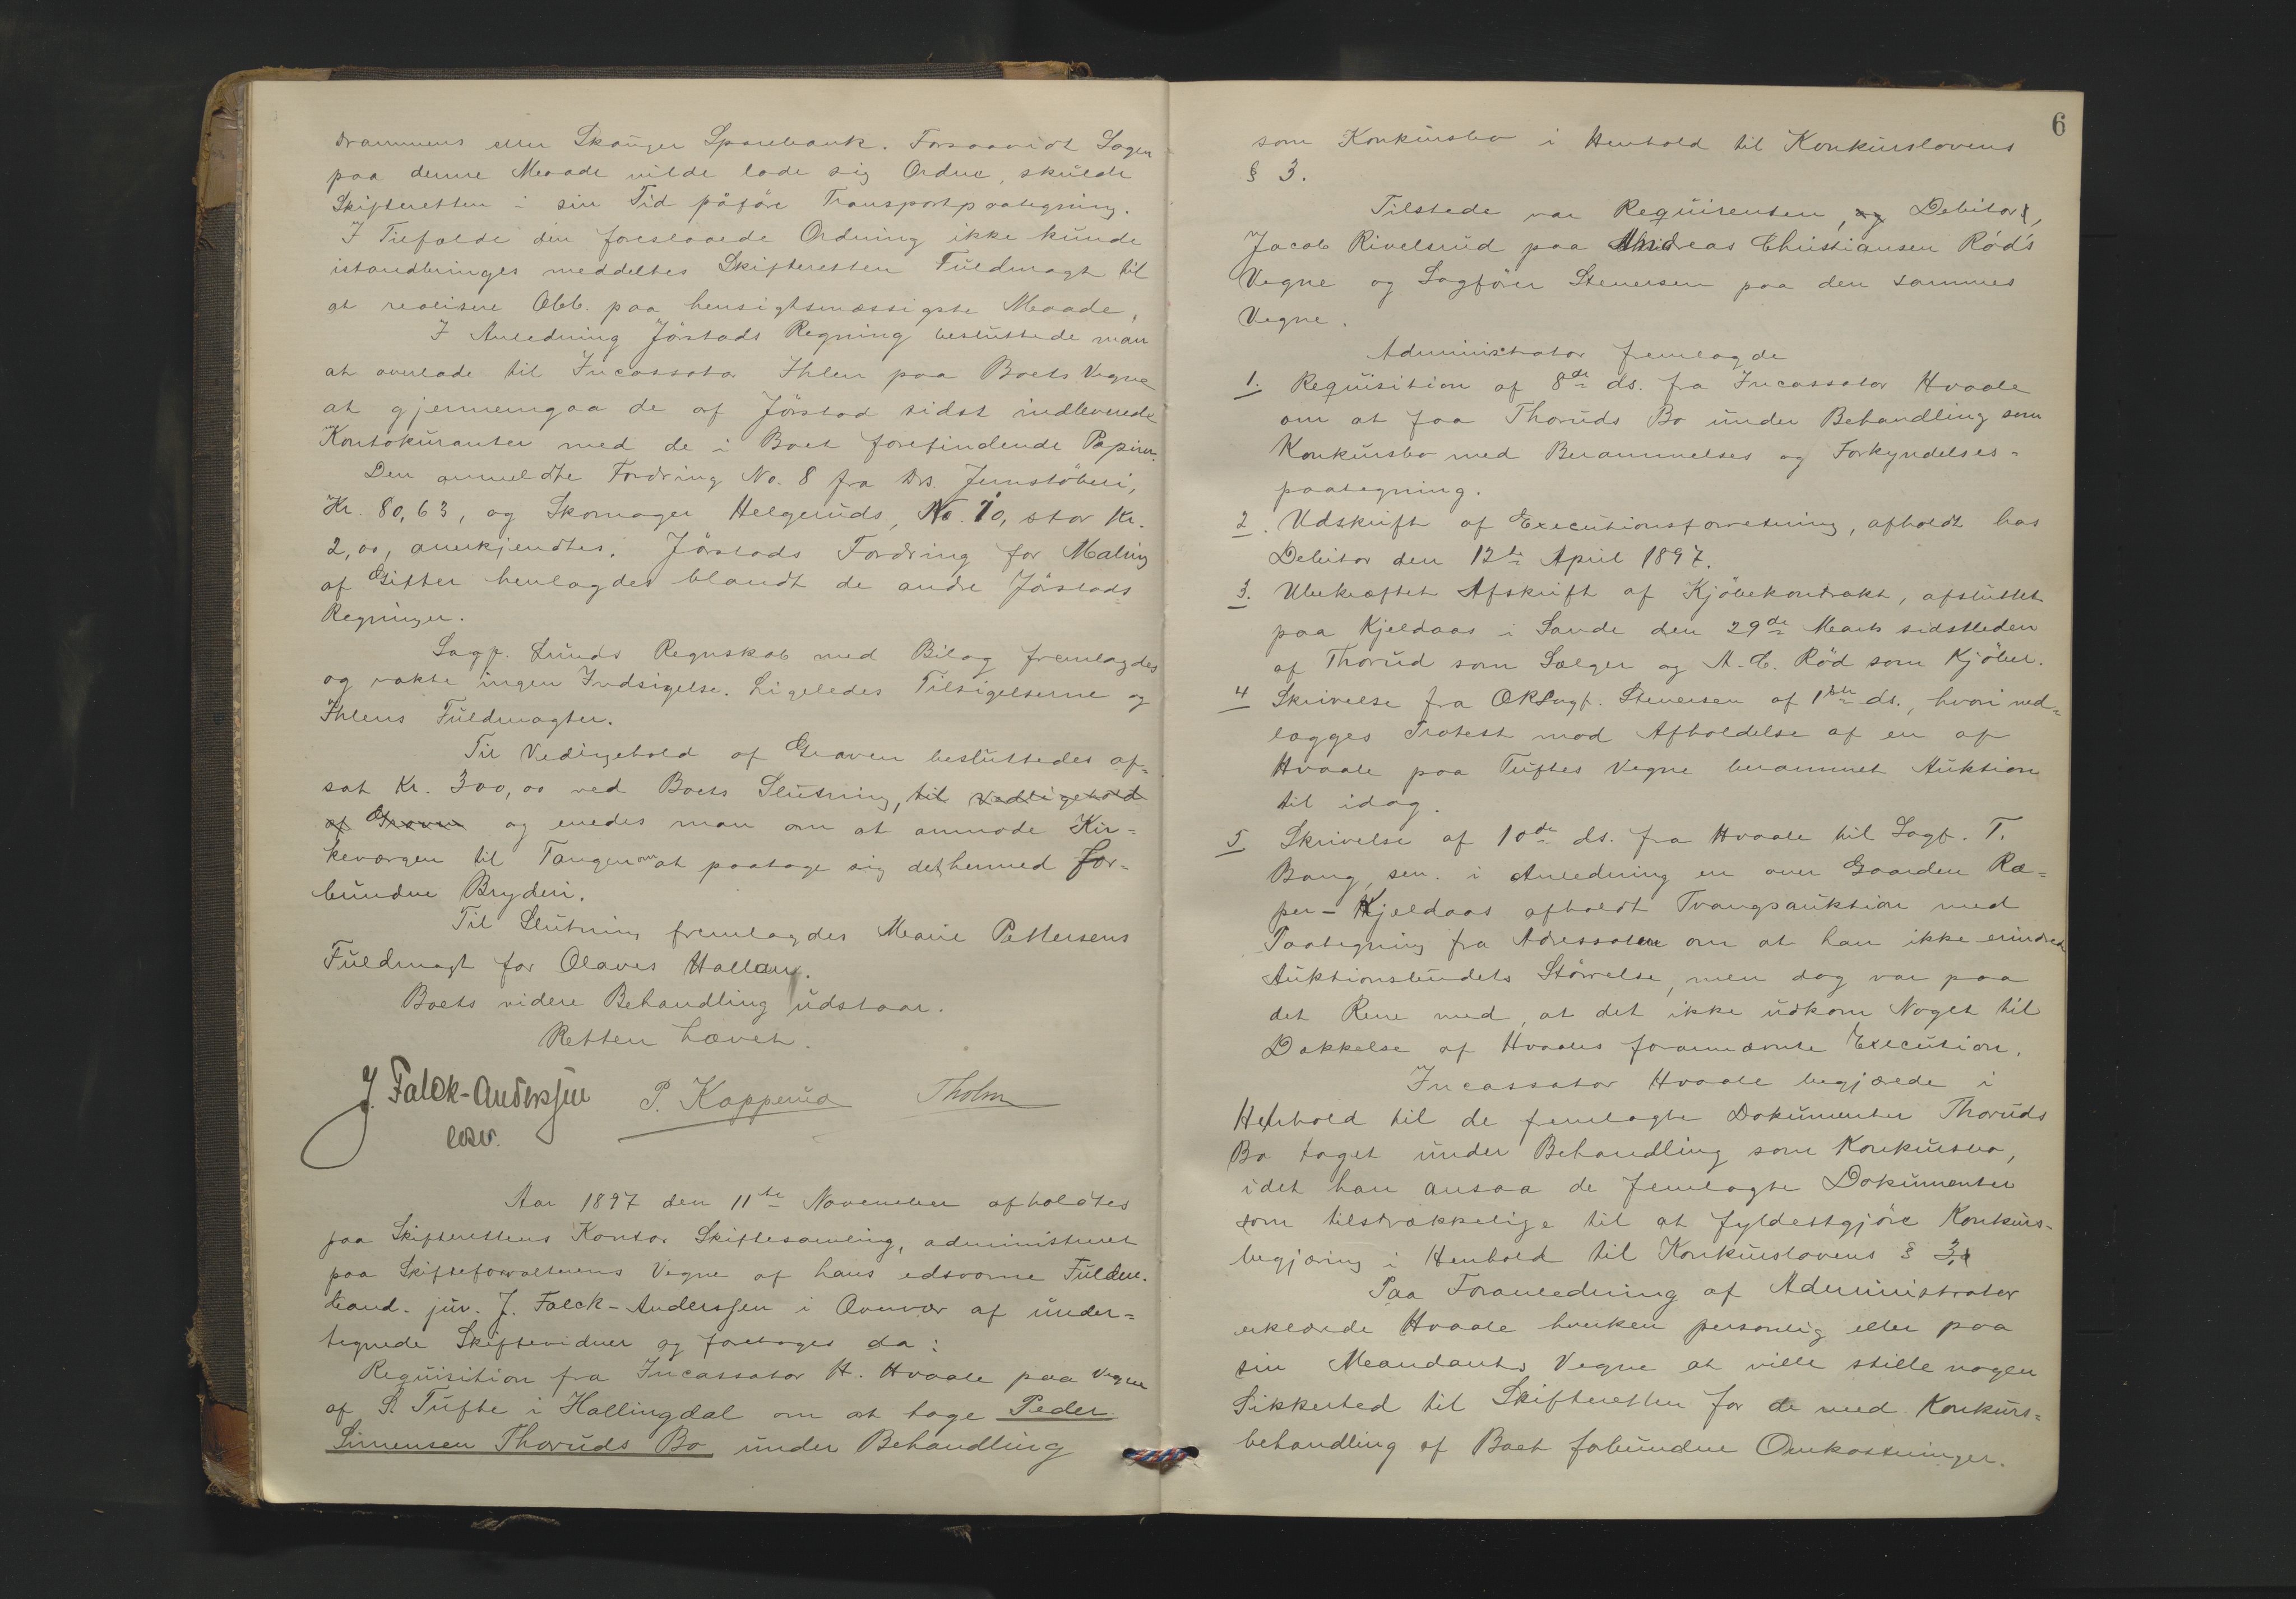 Drammens eller Skouger Sparebank. Forsaavidt Sagen
paa denne Maade vilde lade sig Ordne, skulde
Skifteretten i sin Tid påföre Transportpaategning.
I Tilfælde den foreslaaede Ordning ikke kunde
istandbringes meddeltes Skifteretten Fuldmagt til
at realisere Obl. paa hensigtsmæssigste Maade.
I Anledning Jörstads Regning besluttede man
at overlade til Incassator Ihlen paa Boets Vegne
at gjennemgaa de af Jörstad sidst indleverede
Kontokuranter med de i Boet forefindende Papirer.
Den anmeldte Fordring No. 8 fra Drs. Jernstöberi,
Kr. 80,63, og Skomager Helgeruds, No. 10, stor Kr.
2,00, anerkjendtes. Jörstads Fordring for Maling
af Gitter henlagdes blandt de andre Jörstads
Regninger.
Sagf. Lunds Regnskab med Bilag fremlagdes
og vakte ingen Indsigelse. Ligeledes Tilsigelserne og
Ihlens Fuldmagter.
Til Vedligehold af Graven besluttedes af=
sat Kr. 300,00 ved Boets Slutning, til Vedligehold
af Graven og enedes man om at anmode Kir=
keværgen til Tangen om at paatage sig det hermed for=
bundne Bryderi.
Til Slutning fremlagdes Marie Pettersens
Fuldmagt for Olaves Hallan.
Boets videre Behandling udstaar.
Retten hævet.
J. Falck-Anderssen P. Kopperud Tholm
Aar 1897 den 11te November afholdtes
paa Skifterettens Kontor Skiftesamling, administreret
paa Skifteforvalterens Vegne af hans edsvorne Fuldm.
Cand. jur. J. Falck-Anderssen i Overvær af under=
tegnede Skiftevidner og foretoges da:
Requisition fra Incassator H. Hvaale paa Vegne
af S. Tufte i Hallingdal om at tage Peder
Simensen Thoruds Bo under Behandling
6
som Konkursbo i Henhold til Konkurslovens
§ 3.
Tilstede var Requirenten, og Debitor,
Jacob Rivelsrud paa Andreas Christiansen Röd's
Vegne og Sagförer Stenersen paa den sammes
Vegne.
Administrator fremlagde
1. Requisition af 8de ds. fra Incassator Hvaale
om at faa Thoruds Bo under Behandling som
Konkursbo med Berammelses og Forkyndelses=
paategning.
2. Udskrift af Executionsforretning, afholdt hos
Debitor den 12te April 1897.
3. Ubekræftet Afskrift af Kjöbekontrakt, afsluttet
paa Kjeldaas i Sande den 29de Marts sidstleden
af Thorud som Sælger og A. C. Röd som Kjöber.
4 Skrivelse fra ORSagf. Stenersen af 1ste ds., hvori ned=
lægges Protest mod Afholdelse af en af
Hvaale paa Tuftes Vegne berammet Auktion
til idag.
5 Skrivelse af 10de ds. fra Hvaale til Sagf. T.
Bang, sen. i Anledning en over Gaarden Ræ=
per-Kjeldaas afholdt Tvangsauktion med
Paategning fra Adressaten om at han ikke erindrede
Auktionsbudets Störrelse, men dog var paa
det Rene med, at det ikke udkom Noget til
Dækkelse af Hvaales forannævnte Execution.
Incassator Hvaale begjærede i
Henhold til de fremlagte Dokumenter Thoruds
Bo taget under Behandling som Konkursbo,
idet han ansaa de fremlagte Dokumenter
som tilstrækkelige til at fyldestgjöre Konkurs-
begjæring i Henhold til Konkurslovens § 3.
Paa Foranledning af Administrator
erklærede Hvaale hverken personlig eller paa
sin Mandants Vegne at ville stille nogen
Sikkerhed til Skifteretten for de med Konkurs=
behandling af Boet forbundne Omkostninger.